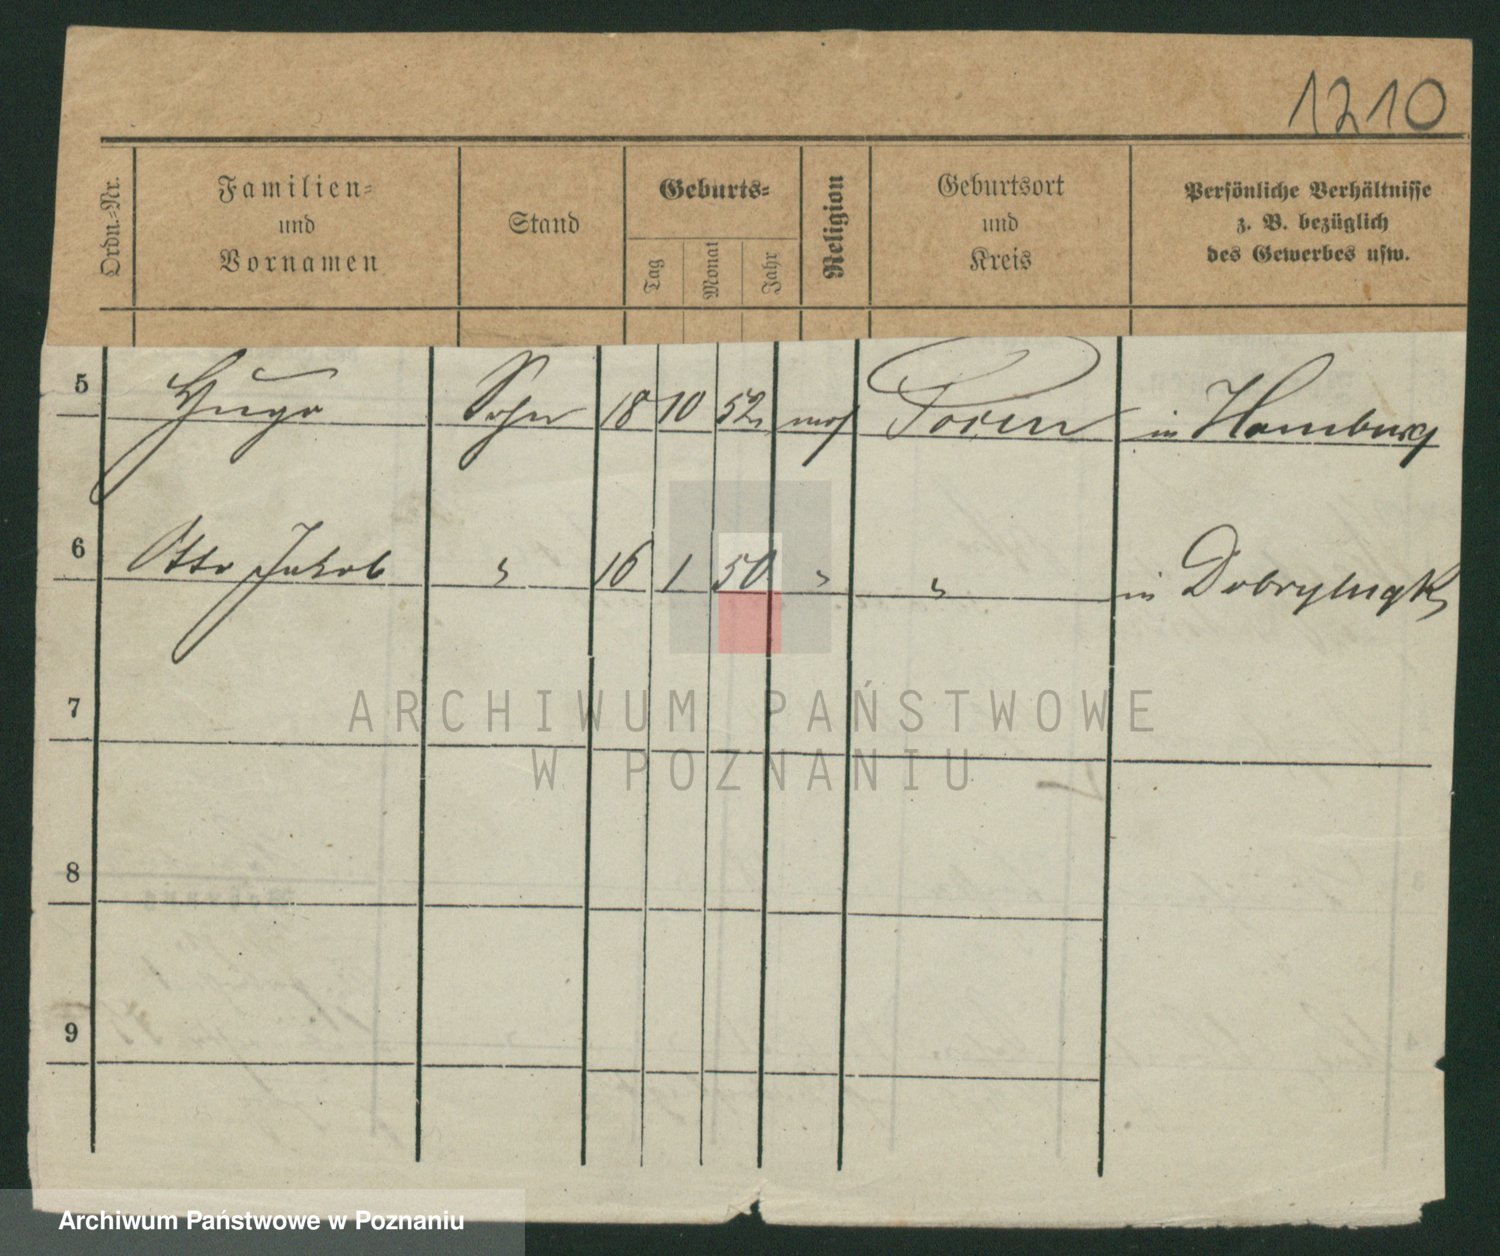 1210
Ordn.-Nr. Familien- und Vornamen Stand Geburts- Tag Monat Jahr Religion Geburtsort und Kreis Persönliche Verhältnisse z. B. bezüglich des Gewerbes usw.
5 Hugo Sohn 18 10 52 mos Posen in Hamburg
6 Otto Jakob " 16 1 50 " " in Dobrylugk
7
8
9
ARCHIWUM PAŃSTWOWE
W POZNANIU
Archiwum Państwowe w Poznaniu